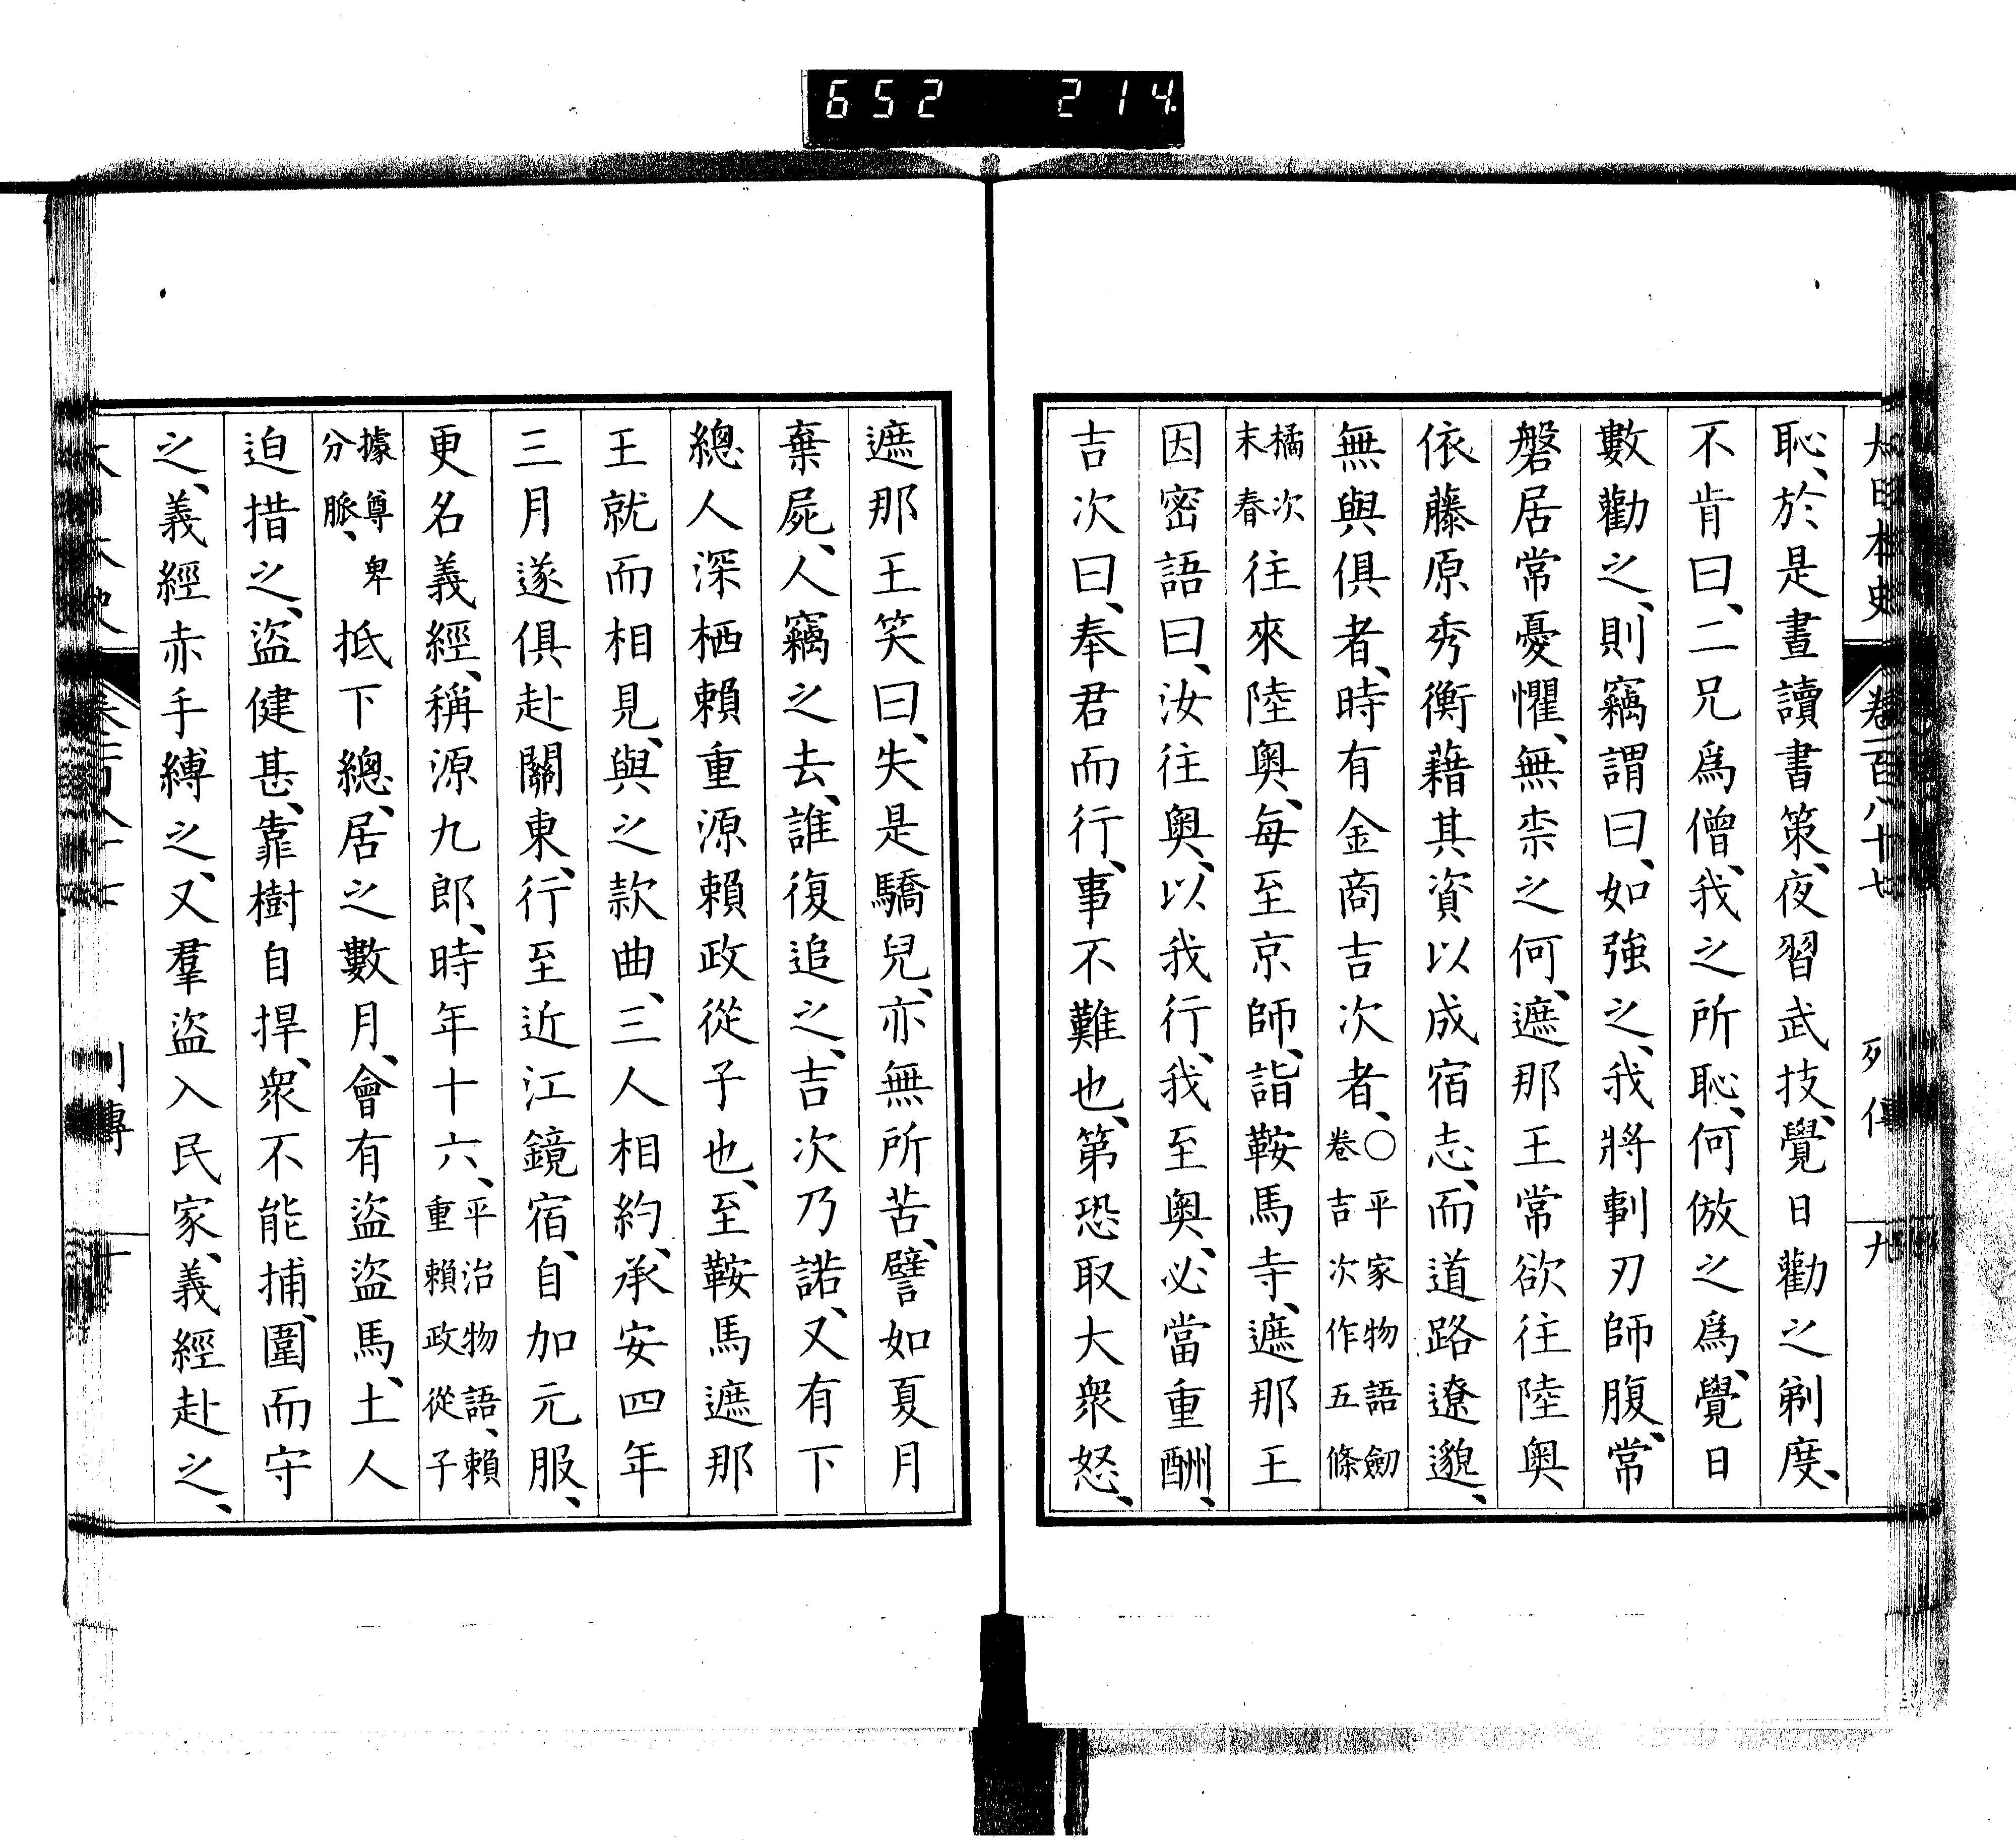 652 214
大日本史 卷一百八十七 列傳 九
恥、於是晝讀書策、夜習武技、覺日勸之剃度、
不肯曰、二兄爲僧、我之所恥、何倣之爲、覺日
數勸之、則竊謂曰、如強之、我將剚刃師腹、常
磐居常憂懼、無柰之何、遮那王常欲往陸奧
依藤原秀衡藉其資以成宿志、而道路遼邈、
無與俱者、時有金商吉次者、○平家物語劒卷吉次作五條
橘次末春往來陸奧、每至京師、詣鞍馬寺、遮那王
因密語曰、汝往奧、以我行、我至奧、必當重酬、
吉次曰、奉君而行、事不難也、第恐取大衆怒、
遮那王笑曰、失是驕兒、亦無所苦、譬如夏月
棄屍、人竊之去、誰復追之、吉次乃諾、又有下
總人深栖賴重源賴政從子也、至鞍馬遮那
王就而相見、與之款曲、三人相約、承安四年
三月遂俱赴關東、行至近江鏡宿、自加元服、
更名義經、稱源九郎、時年十六、平治物語、賴重賴政從子
據尊卑分脈、抵下總、居之數月、會有盜盜馬、土人
迫措之、盜健甚、靠樹自捍、衆不能捕、圍而守
之、義經赤手縛之、又羣盜入民家、義經赴之、